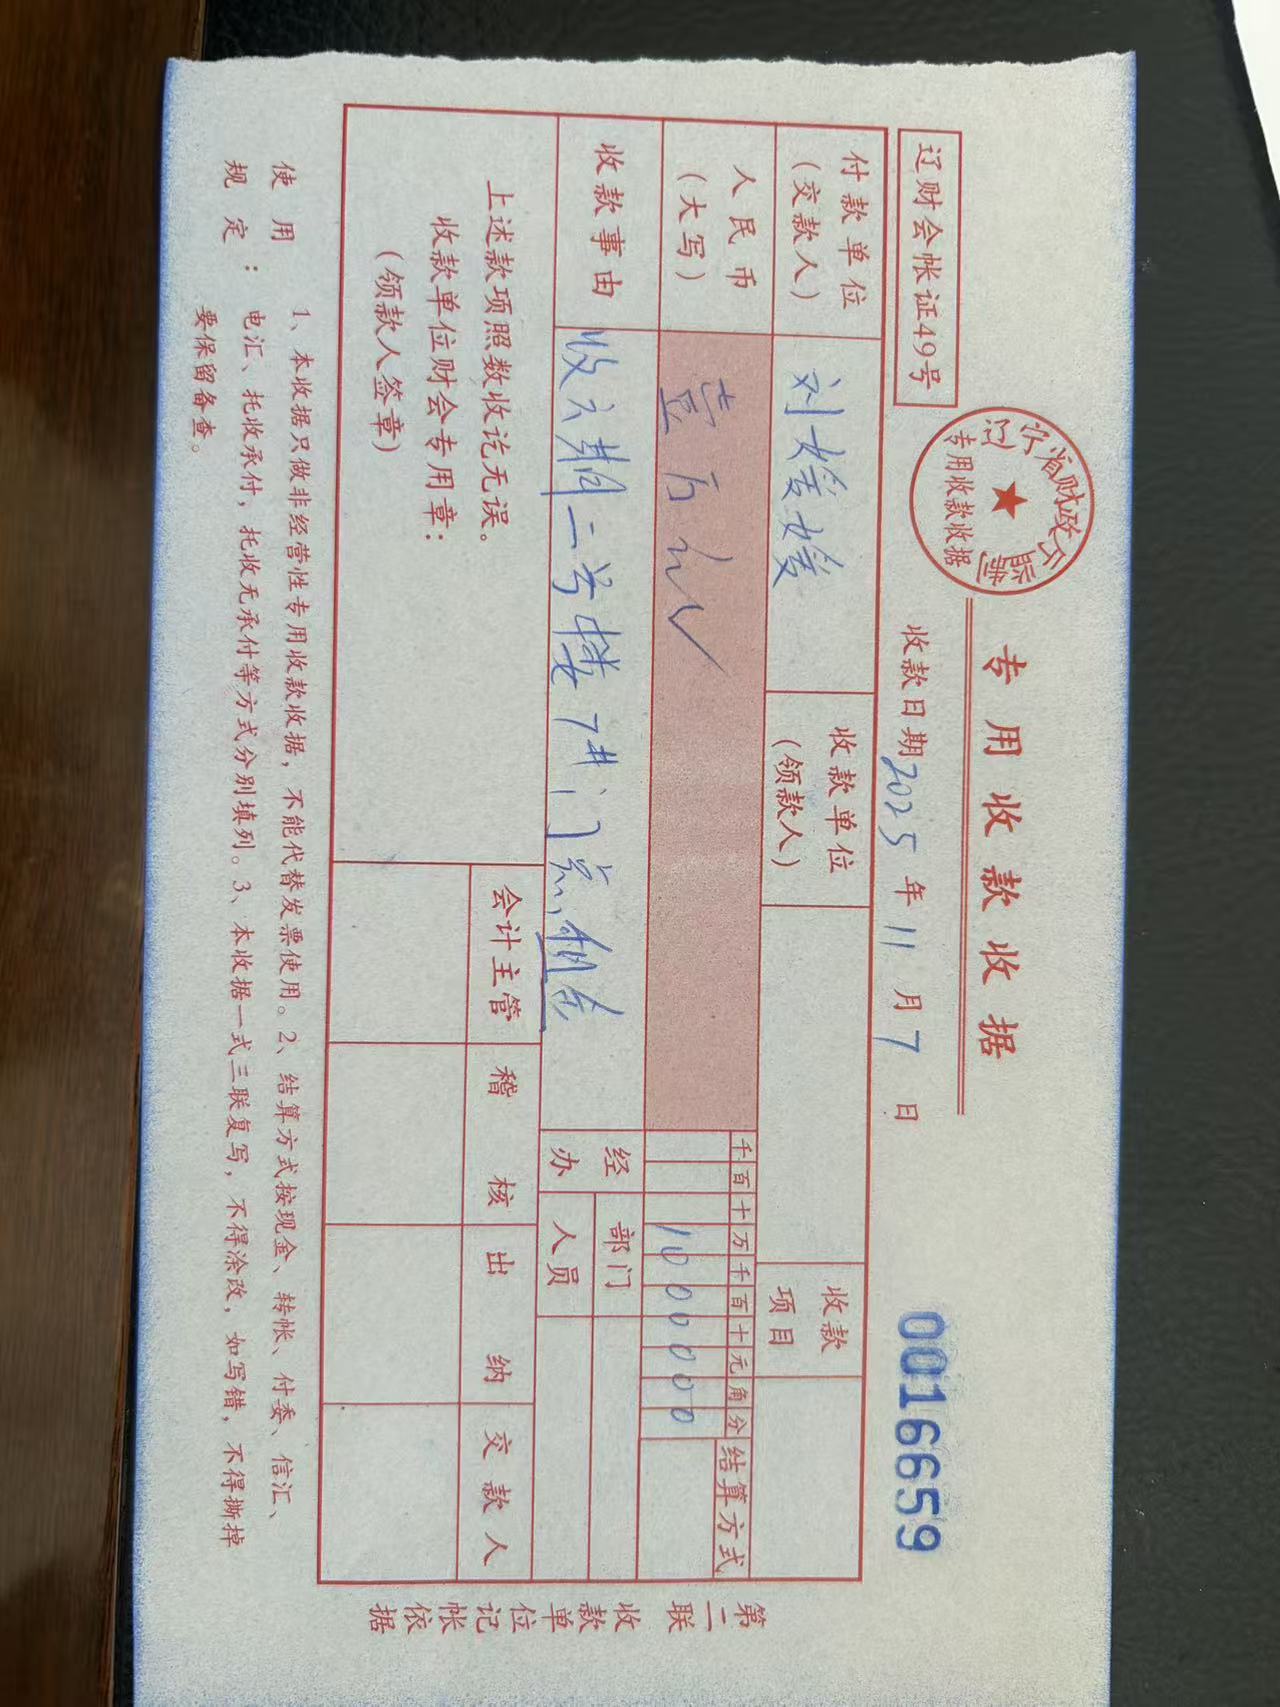 专用收据收据
辽财会帐证49号
辽宁省财政厅监制
专用收款收据
收款日期2025年11月7日
0016659
付款单位
(交款人)
刘媛媛
收款单位
(领款人)
收款
项目
人民币
(大写)
壹万元
千百十万千百十元角分
1000000
结算方式
收款事由
收六期二号楼7#门点,租金
经办
部门
人员
上述款项照数收讫无误。
收款单位财会专用章:
(领款人签章)
会计主管
稽核
出纳
交款人
第二联
收款单位记帐依据
使用规定:
1、本收据只做非经营性专用收款收据,不能代替发票使用。2、结算方式按现金、转帐、付委、信汇、
电汇、托收承付,托收无承付等方式分别填列。3、本收据一式三联复写,不得涂改,如写错,不得撕掉
要保留备查。